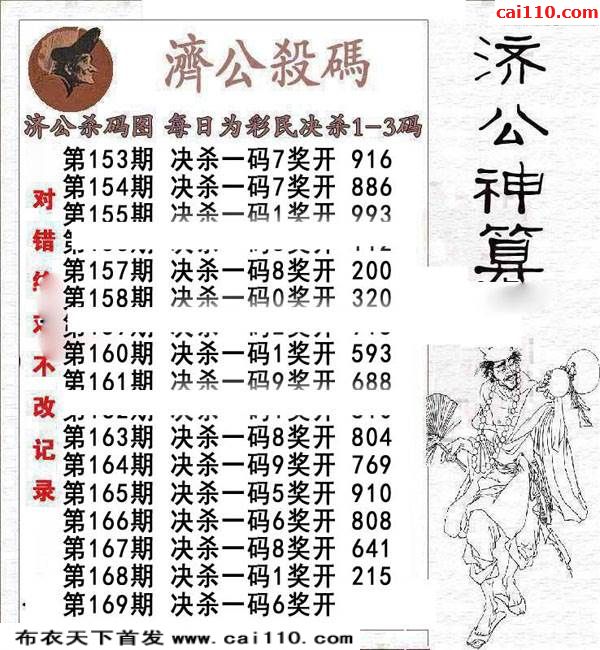 cai110.com
濟公殺碼
济公杀码图 每日为彩民决杀1-3码
第153期 决杀一码7奖开 916
第154期 决杀一码7奖开 886
第155期 决杀一码1奖开 993
第157期 决杀一码8奖开 200
第158期 决杀一码0奖开 320
第160期 决杀一码1奖开 593
第161期 决杀一码9奖开 688
第163期 决杀一码8奖开 804
第164期 决杀一码9奖开 769
第165期 决杀一码5奖开 910
第166期 决杀一码6奖开 808
第167期 决杀一码8奖开 641
第168期 决杀一码1奖开 215
第169期 决杀一码6奖开
对错
不改记录
济公神算
布衣天下首发 www.cai110.com